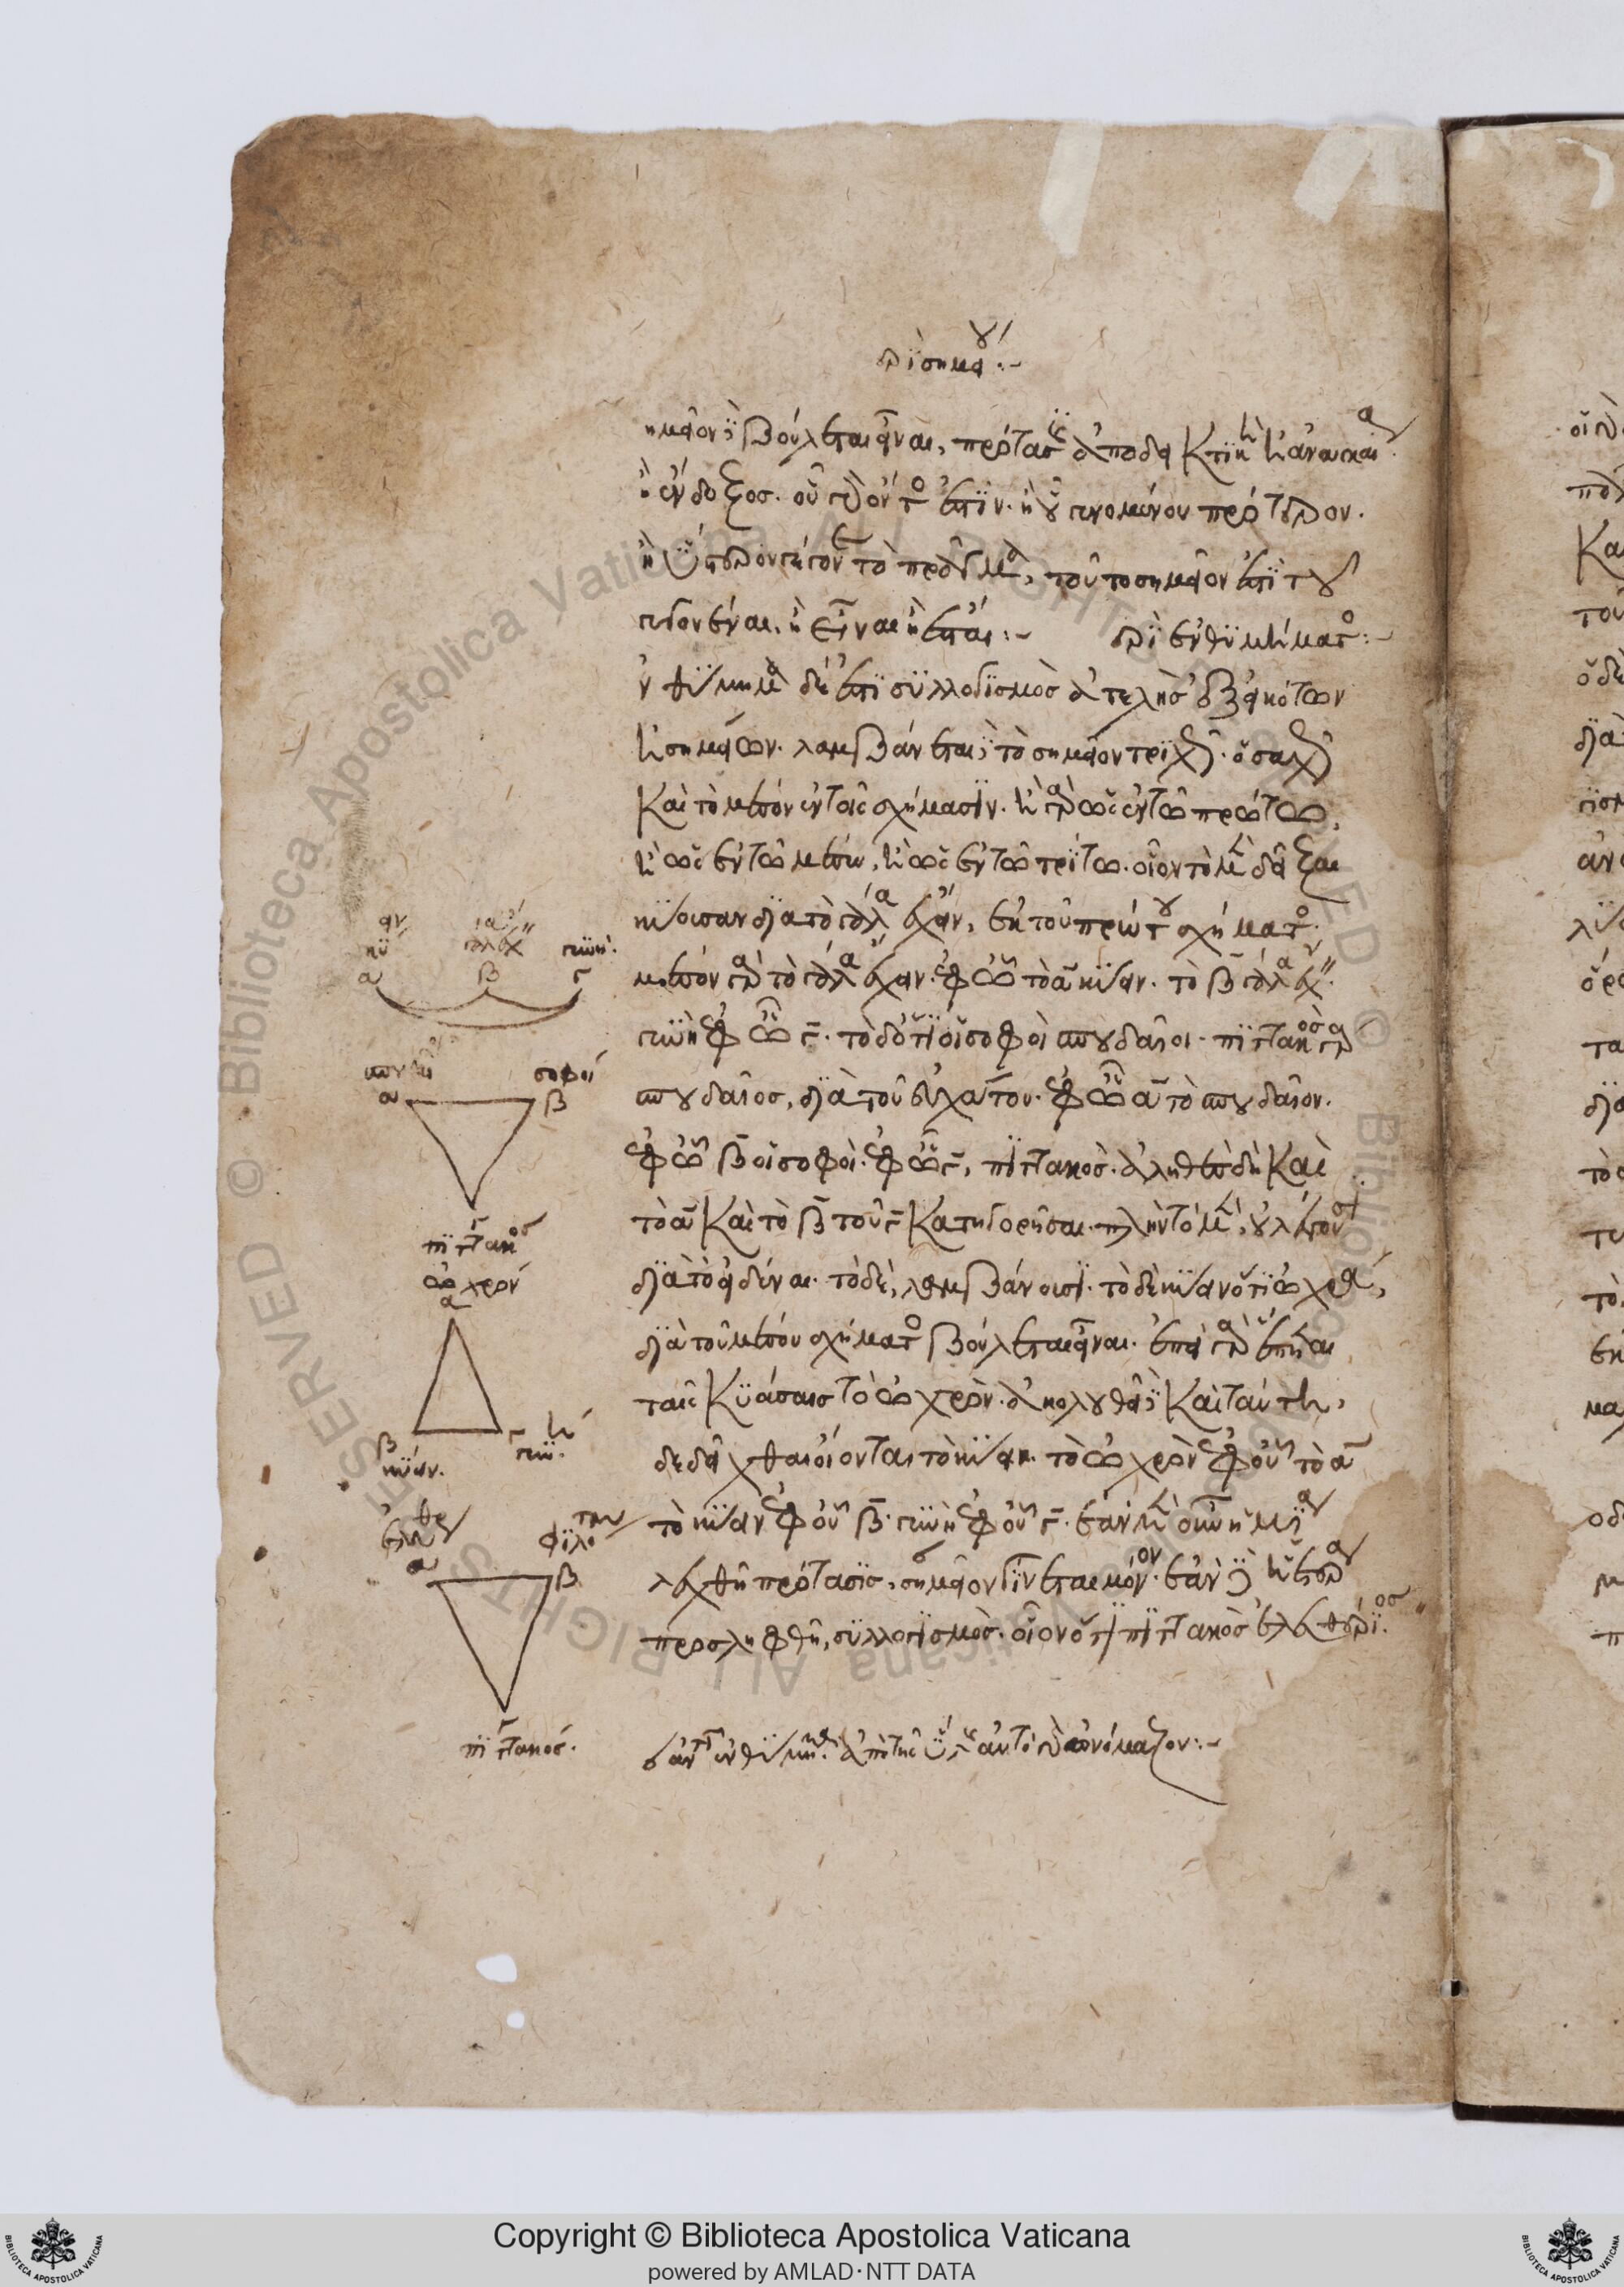 περὶ σημείου:-
ημεῖον δὲ βούλεται εἶναι, πρότασις ἀποδεικτικὴ ἢ ἀναγκαία
ἢ ἔνδοξος. οὗ γὰρ ὄντος ἔστιν. ἢ οὗ γενομένου πρότερον.
ἢ ὕστερον γέγονε τὸ πρᾶγμα, τοῦτο σημεῖον ἐστὶ τοῦ
γεγονέναι, ἢ εἶναι ἢ ἔσται:- περὶ ἐνθυμήματος:-
νθύμημα δέ ἐστι συλλογισμὸς ἀτελὴς ἐξ εἰκότων
ἢ σημείων. λαμβάνεται δὲ τὸ σημεῖον τριχῶς. ὁσαχῶς
καὶ τὸ μέσον ἐν τοῖς σχήμασιν. ἢ γὰρ ὡς ἐν τῷ πρώτῳ,
ἢ ὡς ἐν τῷ μέσῳ, ἢ ὡς ἐν τῷ τρίτῳ. οἷον τὸ μὲν δεῖξαι
κύουσαν διὰ τὸ γάλα ἔχειν, ἐκ τοῦ πρώτου σχήματος.
μέσον γὰρ τὸ γάλα ἔχειν. ἐφ ᾧ τὸ α κύειν. τὸ β γάλα ἔχειν.
γυνὴ ἐφ ᾧ γ. τὸ δ ὅτι οἱ σοφοὶ σπουδαῖοι. πιττακὸς γὰρ
σπουδαῖος, διὰ τοῦ ἐσχάτου. ἐφ ᾧ α τὸ σπουδαῖον.
ἐφ ᾧ β οἱ σοφοὶ. ἐφ ᾧ γ, πιττακὸς. ἀληθὲς δὴ καὶ
τὸ α καὶ τὸ β τοῦ γ κατηγορῆσαι. πλὴν τὸ μὲν, οὐ λέγουσι
διὰ τὸ εἰδέναι. τὸ δὲ, λαμβάνουσι. τὸ δὲ κύειν ὅτι ὠχρά,
διὰ τοῦ μέσου σχήματος βούλεται εἶναι. ἐπεὶ γὰρ ἕπεται
ταῖς κυούσαις τὸ ὠχρὸν. ἀκολουθεῖ δὲ καὶ ταύτῃ,
δεδεῖχθαι οἴονται τὸ κύειν. τὸ ὠχρὸν ἐφ οὗ τὸ α
τὸ κύειν ἐφ οὗ β. γυνὴ ἐφ οὗ γ. ἐὰν μὲν οὖν ἡ μία
λεχθῇ πρότασις, σημεῖον γίνεται μόνον. ἐὰν δὲ ἡ ἑτέρα
προσληφθῇ, συλλογισμὸς. οἷον ὅτι πιττακὸς ἐλευθέριος.
κύειν γάλα ἔχειν γυνή.
α β γ
σπουδαῖον σοφοί
α β
πιττακός
ὠχρόν
α
β γ
κύειν. γυνή.
ἐλευθέριοι φιλότιμοι
α β
πιττακός.